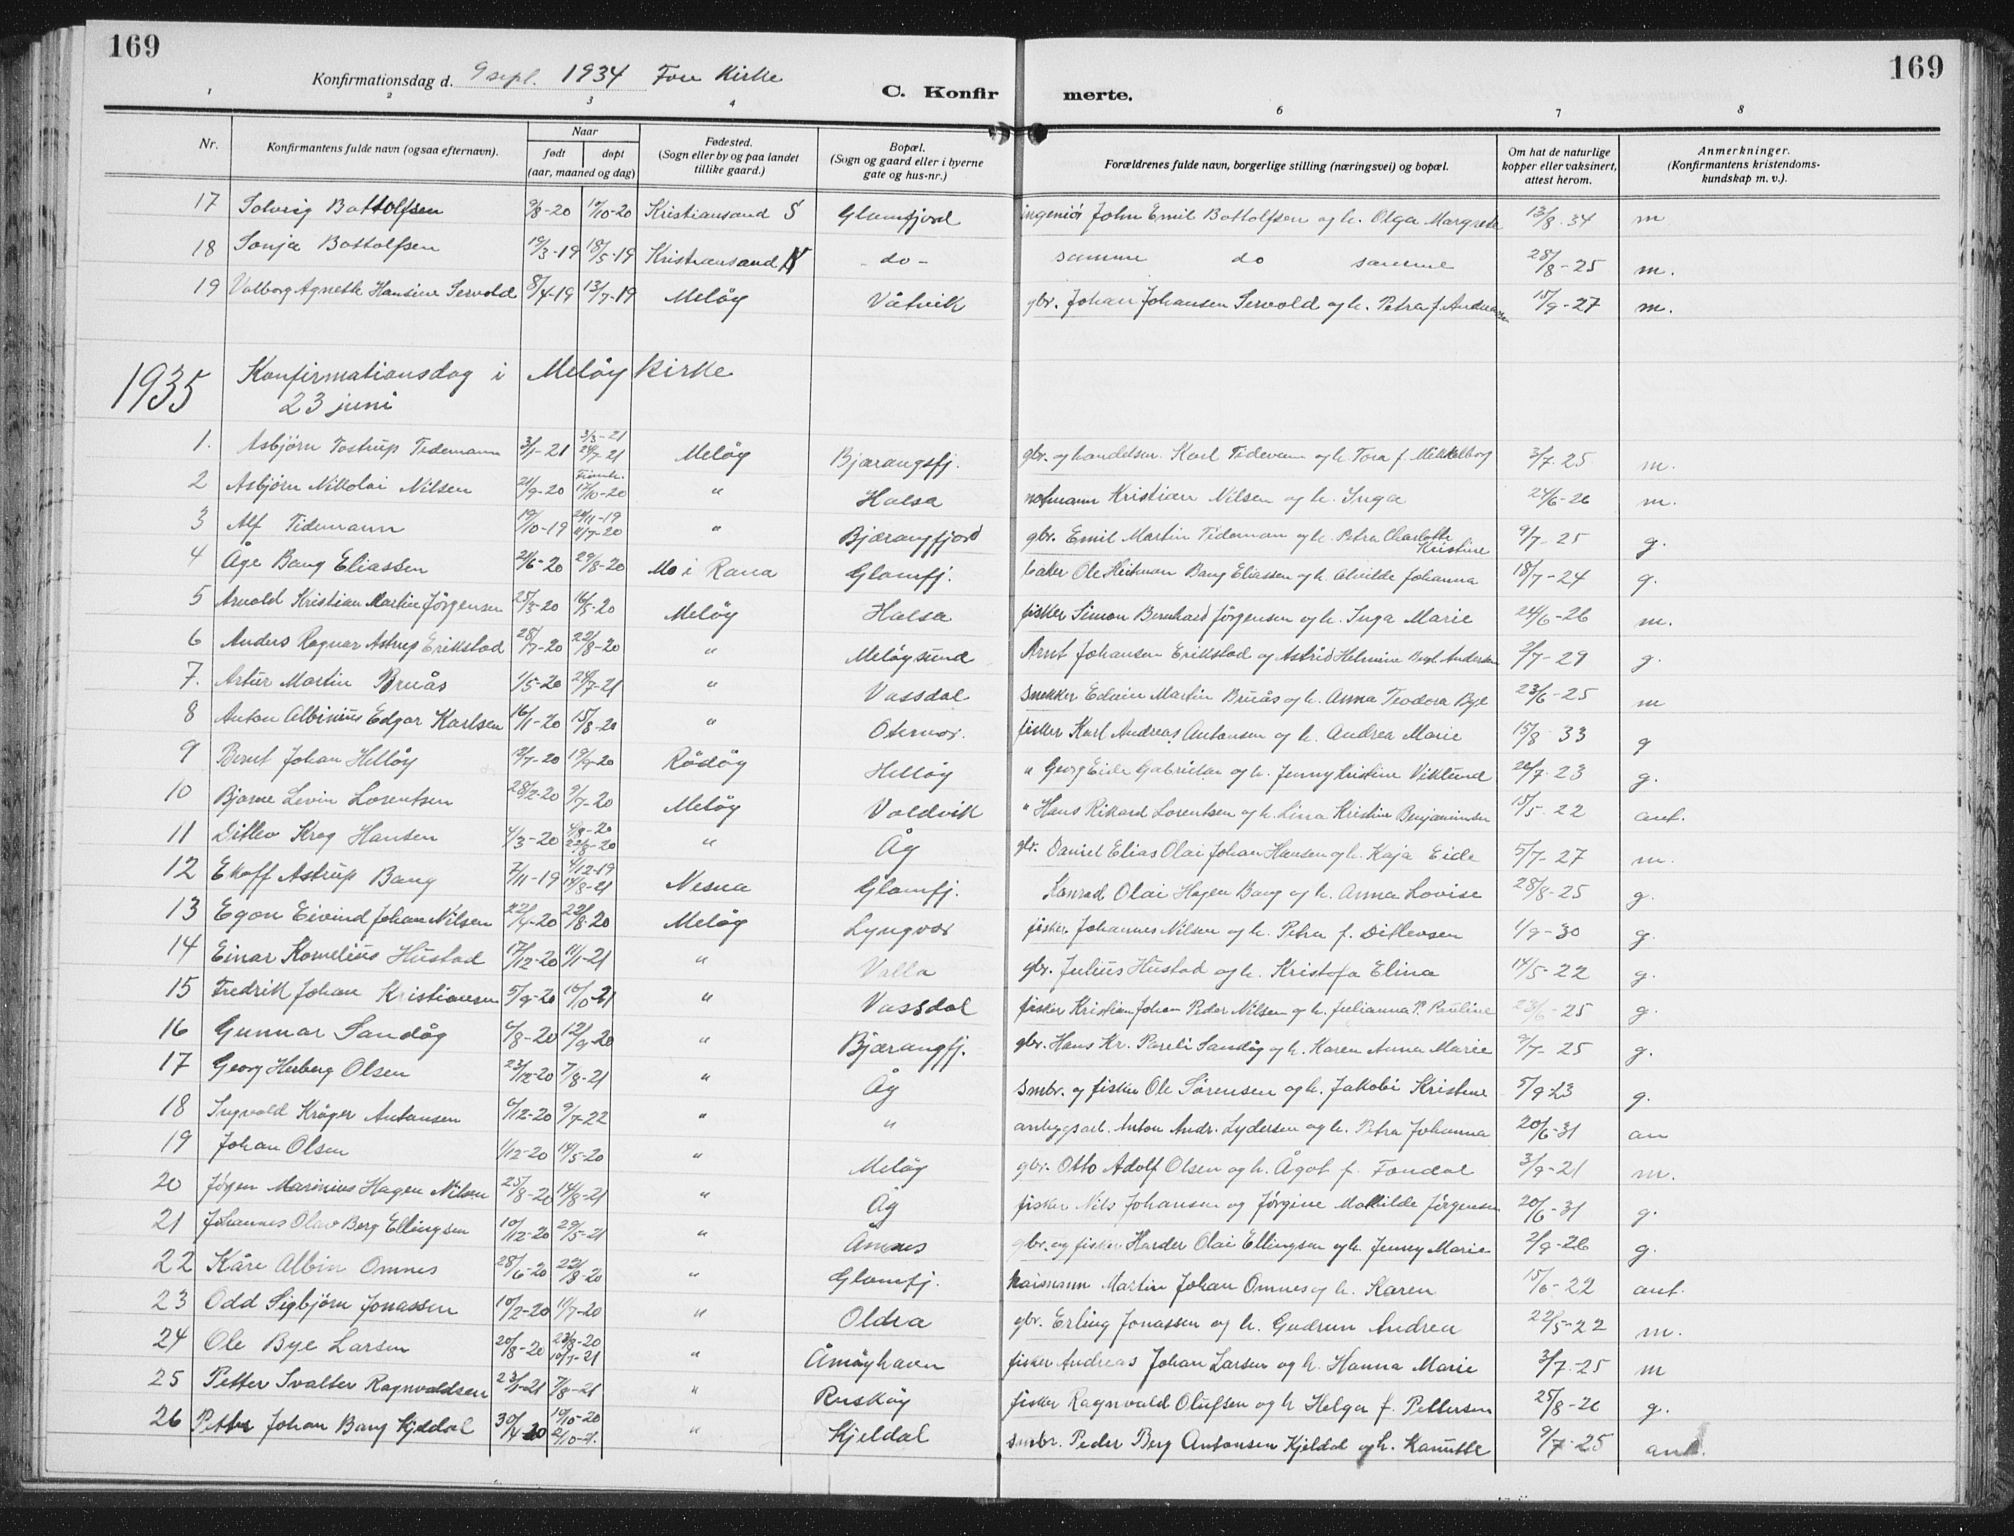 169
169
Konfirmationsdag d. 9 sept. 1934 Fore Kirke
C. Konfirmerte.
1 2 3 4 6 7 8
Nr.
Konfirmantens fulde navn (ogsaa efternavn).
Naar
født døpt
(aar, maaned og dag)
Fødested.
(Sogn eller by og paa landet
tillike gaard.)
Bopæl.
(Sogn og gaard eller i byerne
gate og hus-nr.)
Forældrenes fulde navn, borgerlige stilling (næringsvei) og bopæl.
Om hat de naturlige
kopper eller vaksinert,
attest herom.
Anmerkninger.
(Konfirmantens kristendoms-
kundskap m. v.).
17 Solveig Bottolfsen 9/8-20 17/10-20 Kristiansand S Glomfjord ingeniør John Emil Bottolfsen og h. Olga Margrete 13/8-34 m
18 Sonja Bottolfsen 19/3-19 18/5-19 Kristiansand N -do- samme do samme 28/8-25 m.
19 Valborg Agnethe Hansine Servold 8/4-19 13/7-19 Meløy Våtvik gbr. Johan Johansen Servold og h. Petra f. Andersen 15/9-27 m.
1935 Konfirmationsdag i Meløy kirke
23 juni
1. Asbjørn Tostrup Tidemann 3/1-21 3/3-21 24/7-21 Meløy Bjærangsfj. gbr. og handelsm. Karl Tidemann og h. Tora f. Mikkelborg 3/7-25 m.
2 Asbjørn Nikolai Nilsen 21/9-20 17/10-20 " Halsa notmann Kristian Nilsen og h. Inga 24/6-26 m.
3 Alf Tidemann 19/10-19 24/11-19 11/7-20 " Bjærangfjord gbr. Emil Martin Tideman og h. Petra Charlotte Kristine 9/7-25 g.
4 Åge Bang Eliassen 24/6-20 29/8-20 Mo i Rana Glomfj. baker Ole Heitman Bang Eliassen og h. Alvilde Johanna 18/7-24 g.
5 Arnold Kristian Martin Jörgensen 25/3-20 16/5-20 Meløy Halsa fisker Simon Bernhard Jörgensen og h. Inga Marie 24/6-26 m.
6 Anders Ragnar Astrup Erikstad 28/7-20 22/8-20 " Meløysund Arnt Johansen Erikstad og Astrid Helmine Bergl. Andersen 2/7-29 g.
7. Artur Martin Bruås 1/5-20 24/7-21 " Vassdal snekker Edvin Martin Bruås og h. Anna Teodora Bye 23/6-25 m
8 Anton Albinius Edgar Karlsen 16/1-20 15/8-20 " Oternes. fisker Karl Andreas Antonsen og h. Andrea Marie 15/8 33 g
9 Bernt Johan Helløy 12/7-20 19/9-20 Rödöy Helløy " Georg Eide Gabrielsen og h. Jenny Kristine Viklund 26/7-23 g.
10 Bjarne Levin Lorentsen 28/2-20 9/7-20 Meløy Valdvik " Hans Rikard Lorentsen og h. Lina Kristine Benjaminsen 15/5-22 ant.
11 Ditlev Krog Hansen 4/3-20 4/8-20 22/8-20 " Åg gbr. Daniel Elias Olai Johan Hansen og h. Kaja Eide 5/7-27 m.
12 Ekoff Astrup Bang 7/11-19 4/12-19 14/8-21 Nesna Glomfj. Konrad Olai Hagen Bang og h. Anna Lovise 28/8-25 g.
13 Egon Eivind Johan Nilsen 22/4-20 22/8-20 Meløy Lyngvær fisker. Johannes Nilsen og h. Petra f. Ditlevsen 1/9-30 g.
14 Einar Kornelius Hustad 17/12-20 11/1-21 " Valla gbr. Julius Hustad og h. Kristofa Elina 14/5-22 g.
15 Fredrik Johan Kristiansen 5/9-20 16/10-21 " Vassdal fisker Kristian Johan Peder Nilsen og h. Julianna P. Pauline 23/6-25 g.
16 Gunnar Sandåg 6/8-20 12/9-20 " Bjærangfj. gbr. Hans Kr. Pareli Sandåg og h. Karen Anna Marie 9/7-25 g.
17 Georg Herberg Olsen 23/12-20 7/8-21 " Åg smbr. og fisker Ole Sørensen og h. Jakobi Kristine 5/9 23 g.
18 Ingvald Kröger Antonsen 6/12-20 9/7-22 " " anlegsarb. Anton Andr. Lydersen og h. Petra Johanna 20/6-31 an
19 Johan Olsen 1/12-20 14/5-20 " Meløy gbr. Otto Adolf Olsen og h. Ågot f. Fondal 3/9-21 m.
20 Jörgen Marinius Hagen Nilsen 25/8-20 14/8-21 " Åg fisker Nils Johansen og Jørgine Mathilde Jörgensen 20/6-31 g.
21 Johannes Olav Berg Ellingsen 10/12-20 29/5-21 " Åmnes gbr. og fisker Harder Olai Ellingsen og h. Jenny Marie 2/9-26 g.
22 Kåre Albin Omnes 28/6-20 22/8-20 " Glomfj. Martin Johan Omnes og h. Karen 15/6-22 ant.
23 Odd Sigbjørn Jonassen 10/2-20 11/7-20 " Oldra gbr. Erling Jonassen og h. Gudrun Andrea 22/5-22 m.
24 Ole Bye Larsen 20/8-20 23/8-20 10/7-21 " Åmøyhavn fisker Andreas Johan Larsen og h. Hanna Marie 3/7-25 m
25 Petter Svalter Ragnvaldsen 23/1-21 7/8-21 " Ruskåg fisker Ragnvald Olufsen og h Helga f. Pettersen 25/8-26 g.
26 Petter Johan Bang Kjeldal 30/4-20 10/10-20 2/10-21 " Kjeldal smbr. Peder Berg Antonsen Kjeldal og h. Kanutte 9/7-25 ant.